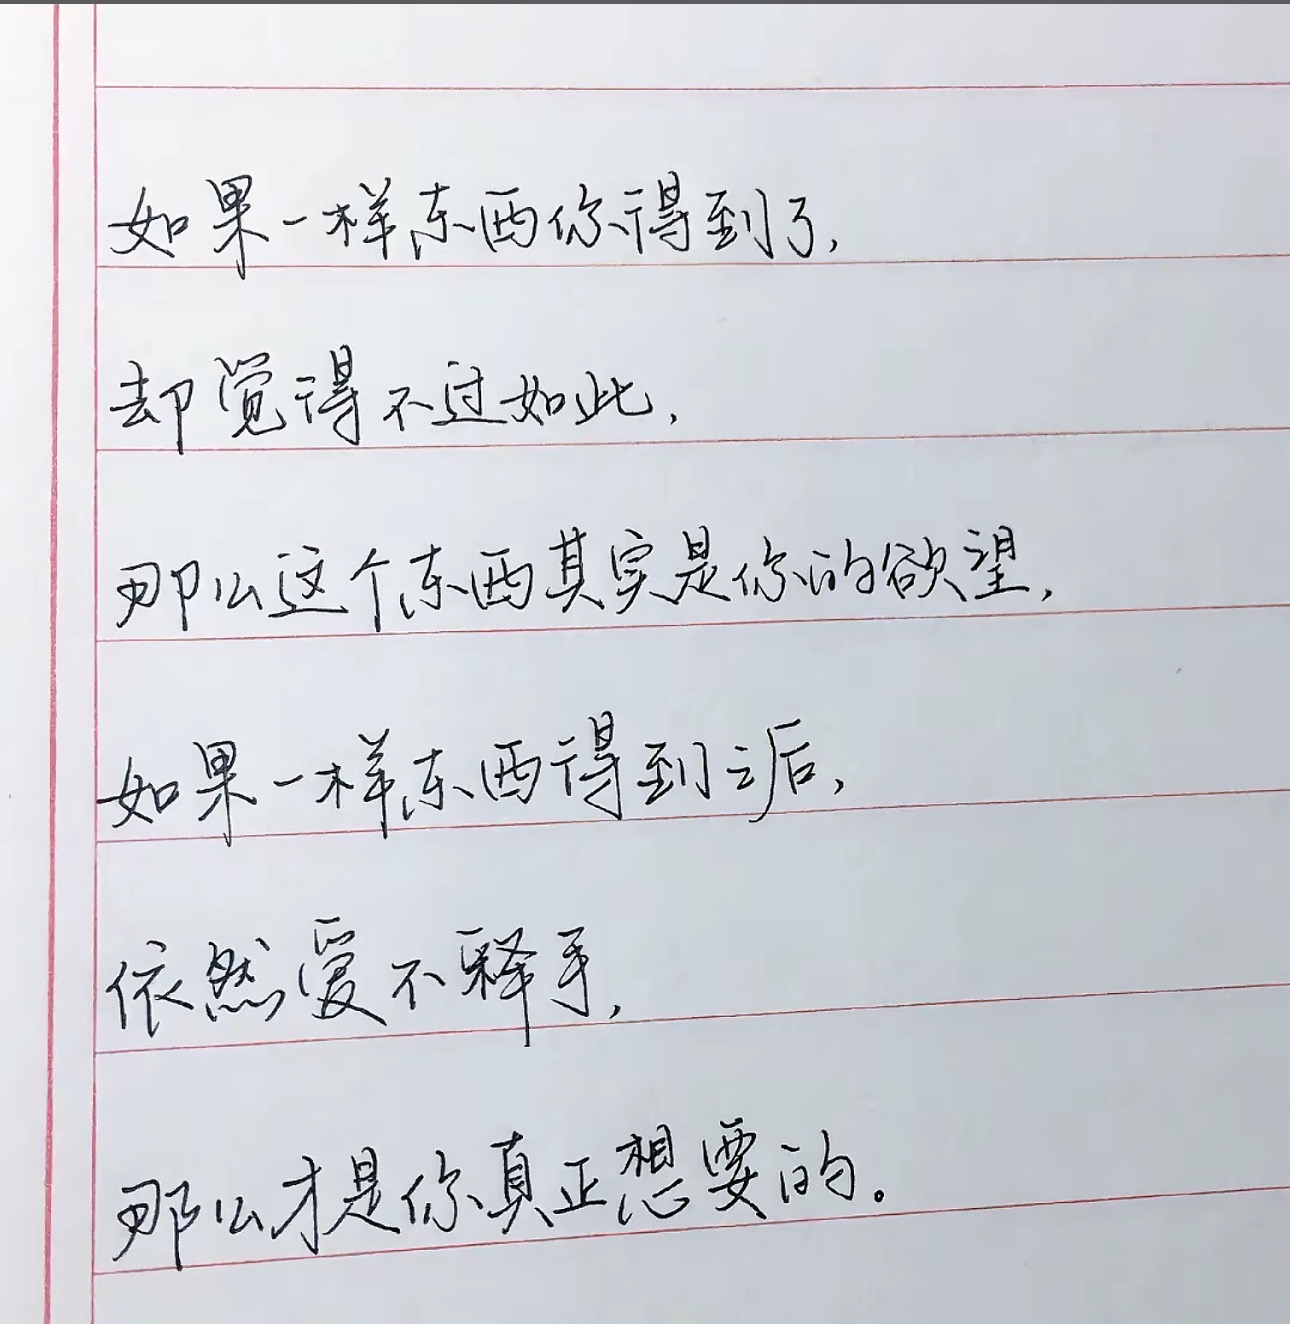 如果一样东西你得到了，
却觉得不过如此，
那么这个东西其实是你的欲望，
如果一样东西得到之后，
依然爱不释手，
那么才是你真正想要的。